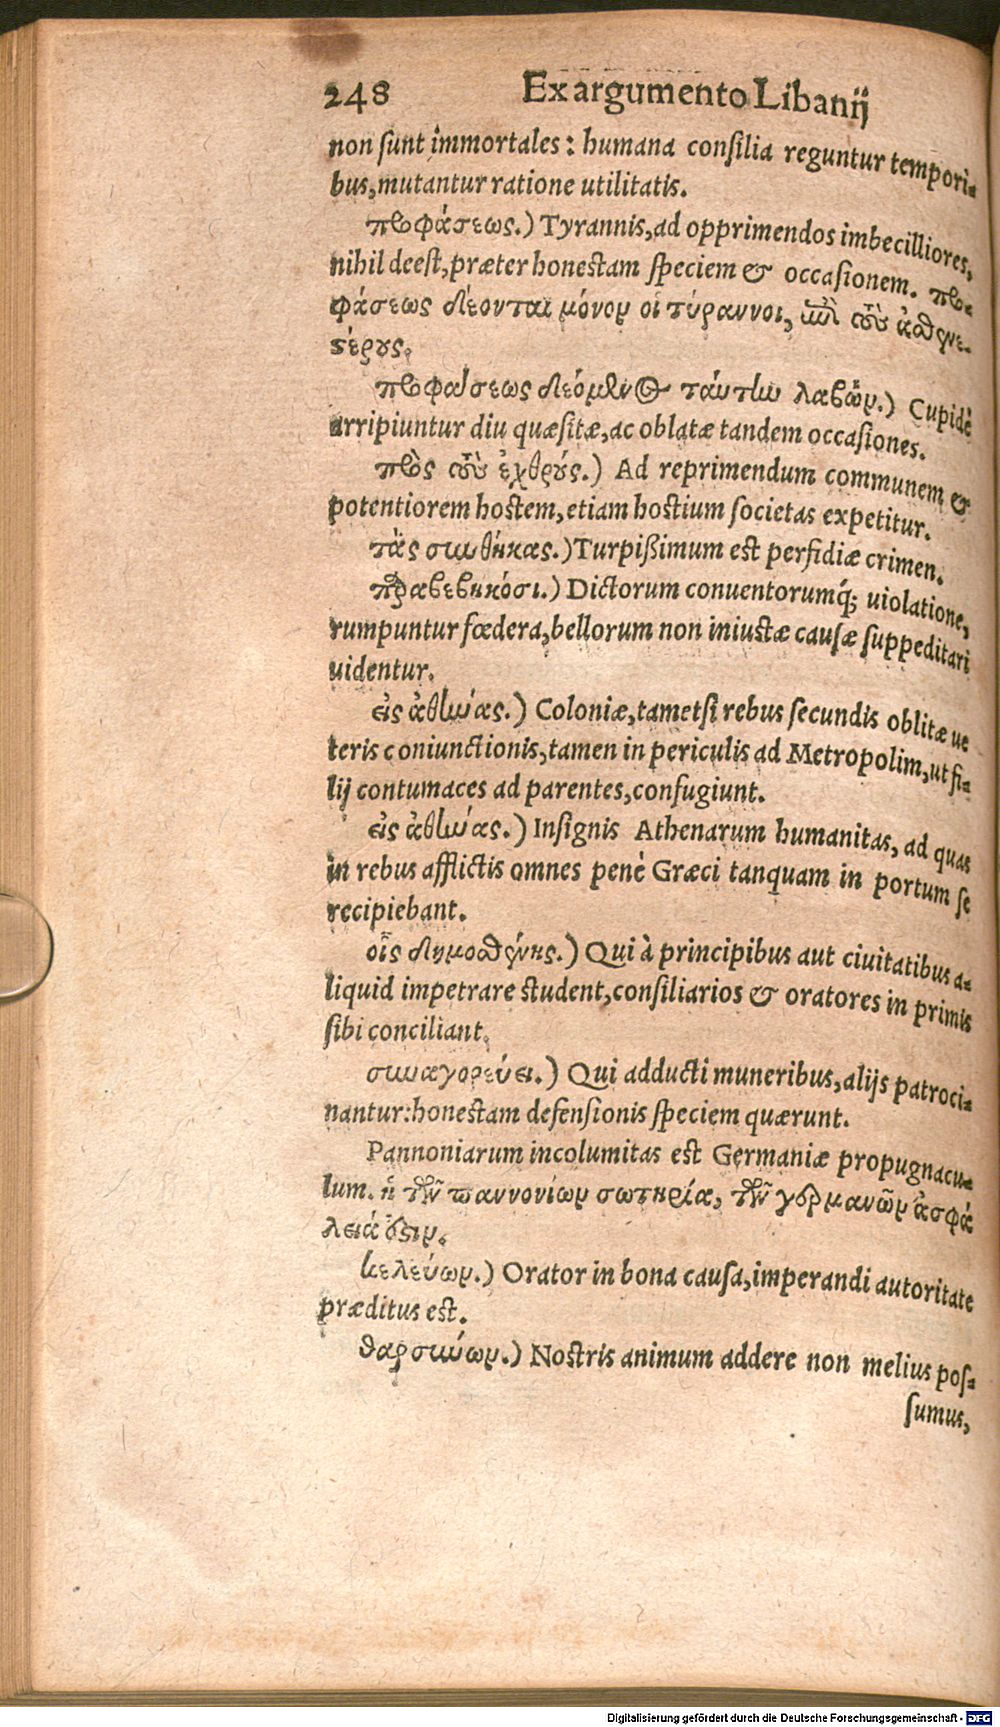 248 Ex argumento Libanij
non sunt immortales: humana consilia reguntur tempori-
bus, mutantur ratione utilitatis.
προφάσεως.) Tyrannis, ad opprimendos imbecilliores,
nihil deest, præter honestam speciem & occasionem. προ-
φάσεως δέονται μόνον οἱ τύραννοι, ἐπὶ τοὺς ἀσθενε-
στέρους.
προφάσεως δεόμενος ταύτην λαβών.) Cupidè
arripiuntur diu quæsitæ, ac oblatæ tandem occasiones.
πρὸς τοὺς ἐχθρούς.) Ad reprimendum communem &
potentiorem hostem, etiam hostium societas expetitur.
τὰς συνθήκας.) Turpißimum est perfidiæ crimen.
παραβεβηκόσι.) Dictorum conuentorumq́; uiolatione,
rumpuntur fœdera, bellorum non iniustæ causæ suppeditari
uidentur.
εἰς ἀθήνας.) Coloniæ, tametsi rebus secundis oblitæ ue
teris coniunctionis, tamen in periculis ad Metropolim, ut fi-
lij contumaces ad parentes, confugiunt.
εἰς ἀθήνας.) Insignis Athenarum humanitas, ad quas
in rebus afflictis omnes penè Græci tanquam in portum se
recipiebant.
οἷς δημοσθένης.) Qui à principibus aut ciuitatibus a-
liquid impetrare student, consiliarios & oratores in primis
sibi conciliant.
συναγορεύει.) Qui adducti muneribus, alijs patroci-
nantur: honestam defensionis speciem quærunt.
Pannoniarum incolumitas est Germaniæ propugnacu-
lum. ἡ τῶν παννονίων σωτηρία, τῶν γερμανῶν ἀσφά
λειά ἐστιν.
κελεύων.) Orator in bona causa, imperandi autoritate
præditus est.
θαρσύνων.) Nostris animum addere non melius pos-
sumus,
Digitalisierung gefördert durch die Deutsche Forschungsgemeinschaft - DFG